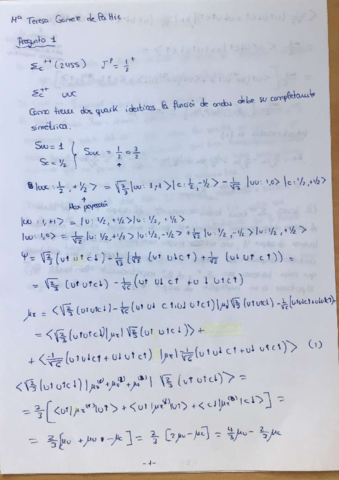 Mª Teresa Gómez de
Pregunta 1
Σc⁺⁺ (2455)  J^P = 1/2⁺
Σc⁺⁺ uuc
Como tienen dos quark identicos la función de ondas debe ser completamente
simétrica.
Suu = 1
Sc = 1/2  } Suuc = 1/2 o 3/2
|uuc: 1/2, +1/2> = √(2/3) |uu: 1,1>|c: 1/2,-1/2> - 1/√3 |uu: 1,0>|c: 1/2,+1/2>
|uu: 1,+1> = |u: 1/2,+1/2>|u: 1/2,+1/2>
|uu: 1,0> = 1/√2 |u: 1/2,+1/2>|u: 1/2,-1/2> + 1/√2 |u: 1/2,-1/2>|u: 1/2,+1/2>
Ψ = √(2/3) (u↑ u↑ c↓) - 1/√3 (1/√2 (u↑ u↓ c↑) + 1/√2 (u↓ u↑ c↑)) =
= √(2/3) (u↑ u↑ c↓) - 1/√6 (u↑ u↓ c↑ + u↓ u↑ c↑)
= <√(2/3) (u↑ u↑ c↓) |μz| √(2/3) (u↑ u↑ c↓)> +
+ <1/√6 (u↑ u↓ c↑ + u↓ u↑ c↑) |μz| 1/√6 (u↑ u↓ c↑ + u↓ u↑ c↑)> (1)
<√(2/3) (u↑ u↑ c↓) | μz⁽¹⁾ + μz⁽²⁾ + μz⁽³⁾ | √(2/3) (u↑ u↑ c↓)> =
= 2/3 [<u↑| μz⁽¹⁾ |u↑> + <u↑| μz⁽²⁾ |u↑> + <c↓| μz⁽³⁾ |c↓>] =
= 2/3 [μu + μu - μc] = 2/3 [2μu - μc] = 4/3 μu - 2/3 μc
-1-